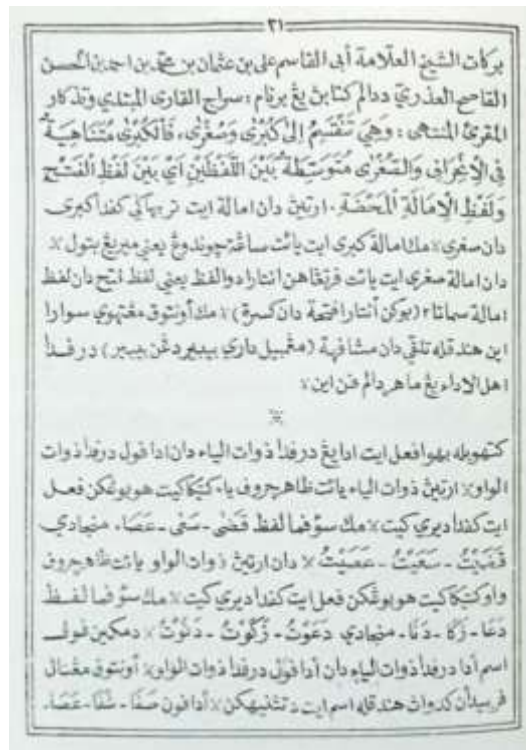 ٣١
بركات الشيخ العلامة أبى القاسم على بن عثمان بن محمد بن احمد بن الحسن
القاصح العذري ددالم كتابڽ يڠ برنام : سراج القارى المبتدي وتذكار
المقرئ المنتهى : وَهِيَ تَنْقَسِمُ إِلىٰ كُبْرٰى وَصُغْرٰى، فَالْكُبْرٰى مُتَنَاهِيَةٌ
فِي الاِنْحِرَافِ وَالصُّغْرٰى مُتَوَسِّطَةٌ بَيْنَ اللَّفْظَيْنِ اَيْ بَيْنَ لَفْظِ الْفَتْحِ
وَلَفْظِ الْاِمَالَةِ الْمَحْضَةِ . ارتيڽ دان امالة ايت تربهاݢي كفدا كبرى
دان صغرى ⁒ مك امالة كبرى ايت يائت ساڠة چوندوڠ يعني ميريڠ بتول ⁒
دان امالة صغرى ايت يائت فرتڠاهن انتارا دوا لفظ يعني لفظ فتح دان لفظ
امالة سمات٢ (بوكن أنتارا فتحة دان كسرة) ⁒ مك أونتوق مڠتهوي سوارا
اين هندقله تلقي دان مشافهة (مڠمبيل داري بيبير دڠن بيبير) درفدا
اهل الاداء يڠ ماهر دالم فن اين ⁒
كتهويله بهوا فعل ايت ادا يڠ درفدا ذوات الياء دان ادا ڤول درفدا ذوات
الواو ⁒ ارتيڽ ذوات الياء يائت ظاهر حروف ياء كتيكا كيت هوبوڠكن فعل
ايت كفدا ديري كيت ⁒ مك سڤرفما لفظ قَضٰى - سَعٰى - عَصَا . منجادي
قَضَيْتُ - سَعَيْتُ - عَصَيْتُ ⁒ دان ارتيڽ ذوات الواو يائت ظاهر حروف
واو كتيكا كيت هوبوڠكن فعل ايت كفدا ديري كيت ⁒ مك سڤرفما لفظ
دَعَا - زَكَا - دَنَا . منجادي دَعَوْتُ - زَكَوْتُ - دَنَوْتُ ⁒ دمكين ڤول
اسم أدا درفدا ذوات الياء دان أدا ڤول درفدا ذوات الواو ⁒ أونتوق مڠنال
فربيدأن كدواڽ هندقله اسم ايت دتثنيهكن ⁒ أداڤون صَفَا - شَفَا - عَصَا .